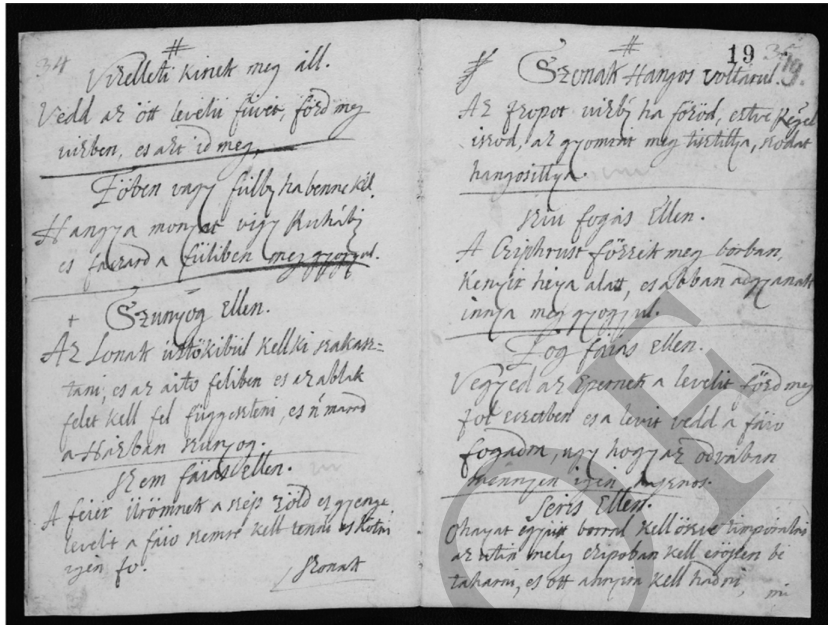 34
Vizelleti kinek meg áll.
Vedd az ött levelü füvet, főzd meg
vizben, es azt id meg,
Föben vagy fülbṅ ha benne kél.
Hangya monyat vigy Ruhábṅ
es faczard a füliben meg gyogyul.
Szunyog Ellen.
Az Lonak üstökibül kell ki szakasz=
tani, es az aito feliben es az ablak
felet kell fel függeszteni, es ń marad
a Házban szunyog.
szem fáiás ellen.
A feier ürömnek a szép zöld es gyenge
levelit a fáio szemre kell tenni es kötni
igen jo.
szonak
19
Szonak Hangos voltárul.
Az jzopot vizbṅ ha főzöd, estve Regel
iszod, az gyomrot meg tisztittya, szodat
hangosittya.
sziu fogás Ellen.
A Cziphrust főzzék meg borban,
Kenyir héya alatt, es abban adgyanak
innya meg gyogyul.
Fog fáiás ellen.
Vegyed az Epernek a levelit főzd meg
jol eczetben es a levit vedd a fáio
fogadra, ugy hogy az odvában
mennyen igen hasznos.
Seris Ellen.
Ohayat együtt borral kell ökve timporálni
az utan meleg czipoban kell erössen bé
takarni, es ott annyira kell hadni,
mi
OF